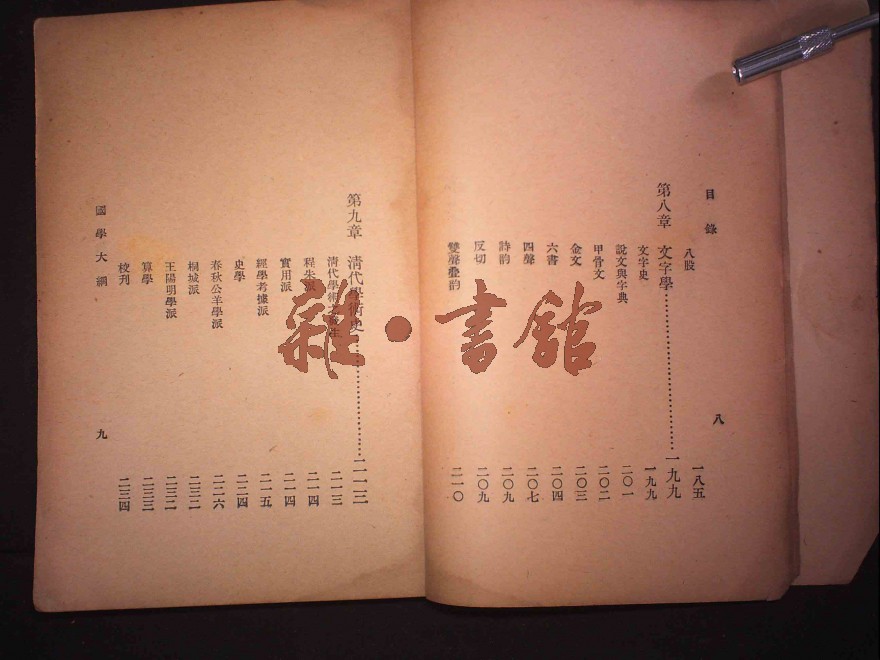 目錄
八股 一八五
第八章 文字學 一九九
文字史 一九九
說文與字典 二〇一
甲骨文 二〇二
金文 二〇三
六書 二〇四
四聲 二〇七
詩韵 二〇九
反切 二〇九
雙聲叠韵 二一〇
八
第九章 清代學術史 二一三
清代學術之 二一三
程朱派 二一四
實用派 二一四
經學考據派 二一五
史學 二二四
春秋公羊學派 二二六
桐城派 二三一
王陽明學派 二三二
算學 二三三
校刊 二三四
國學大綱
九
雜·書館